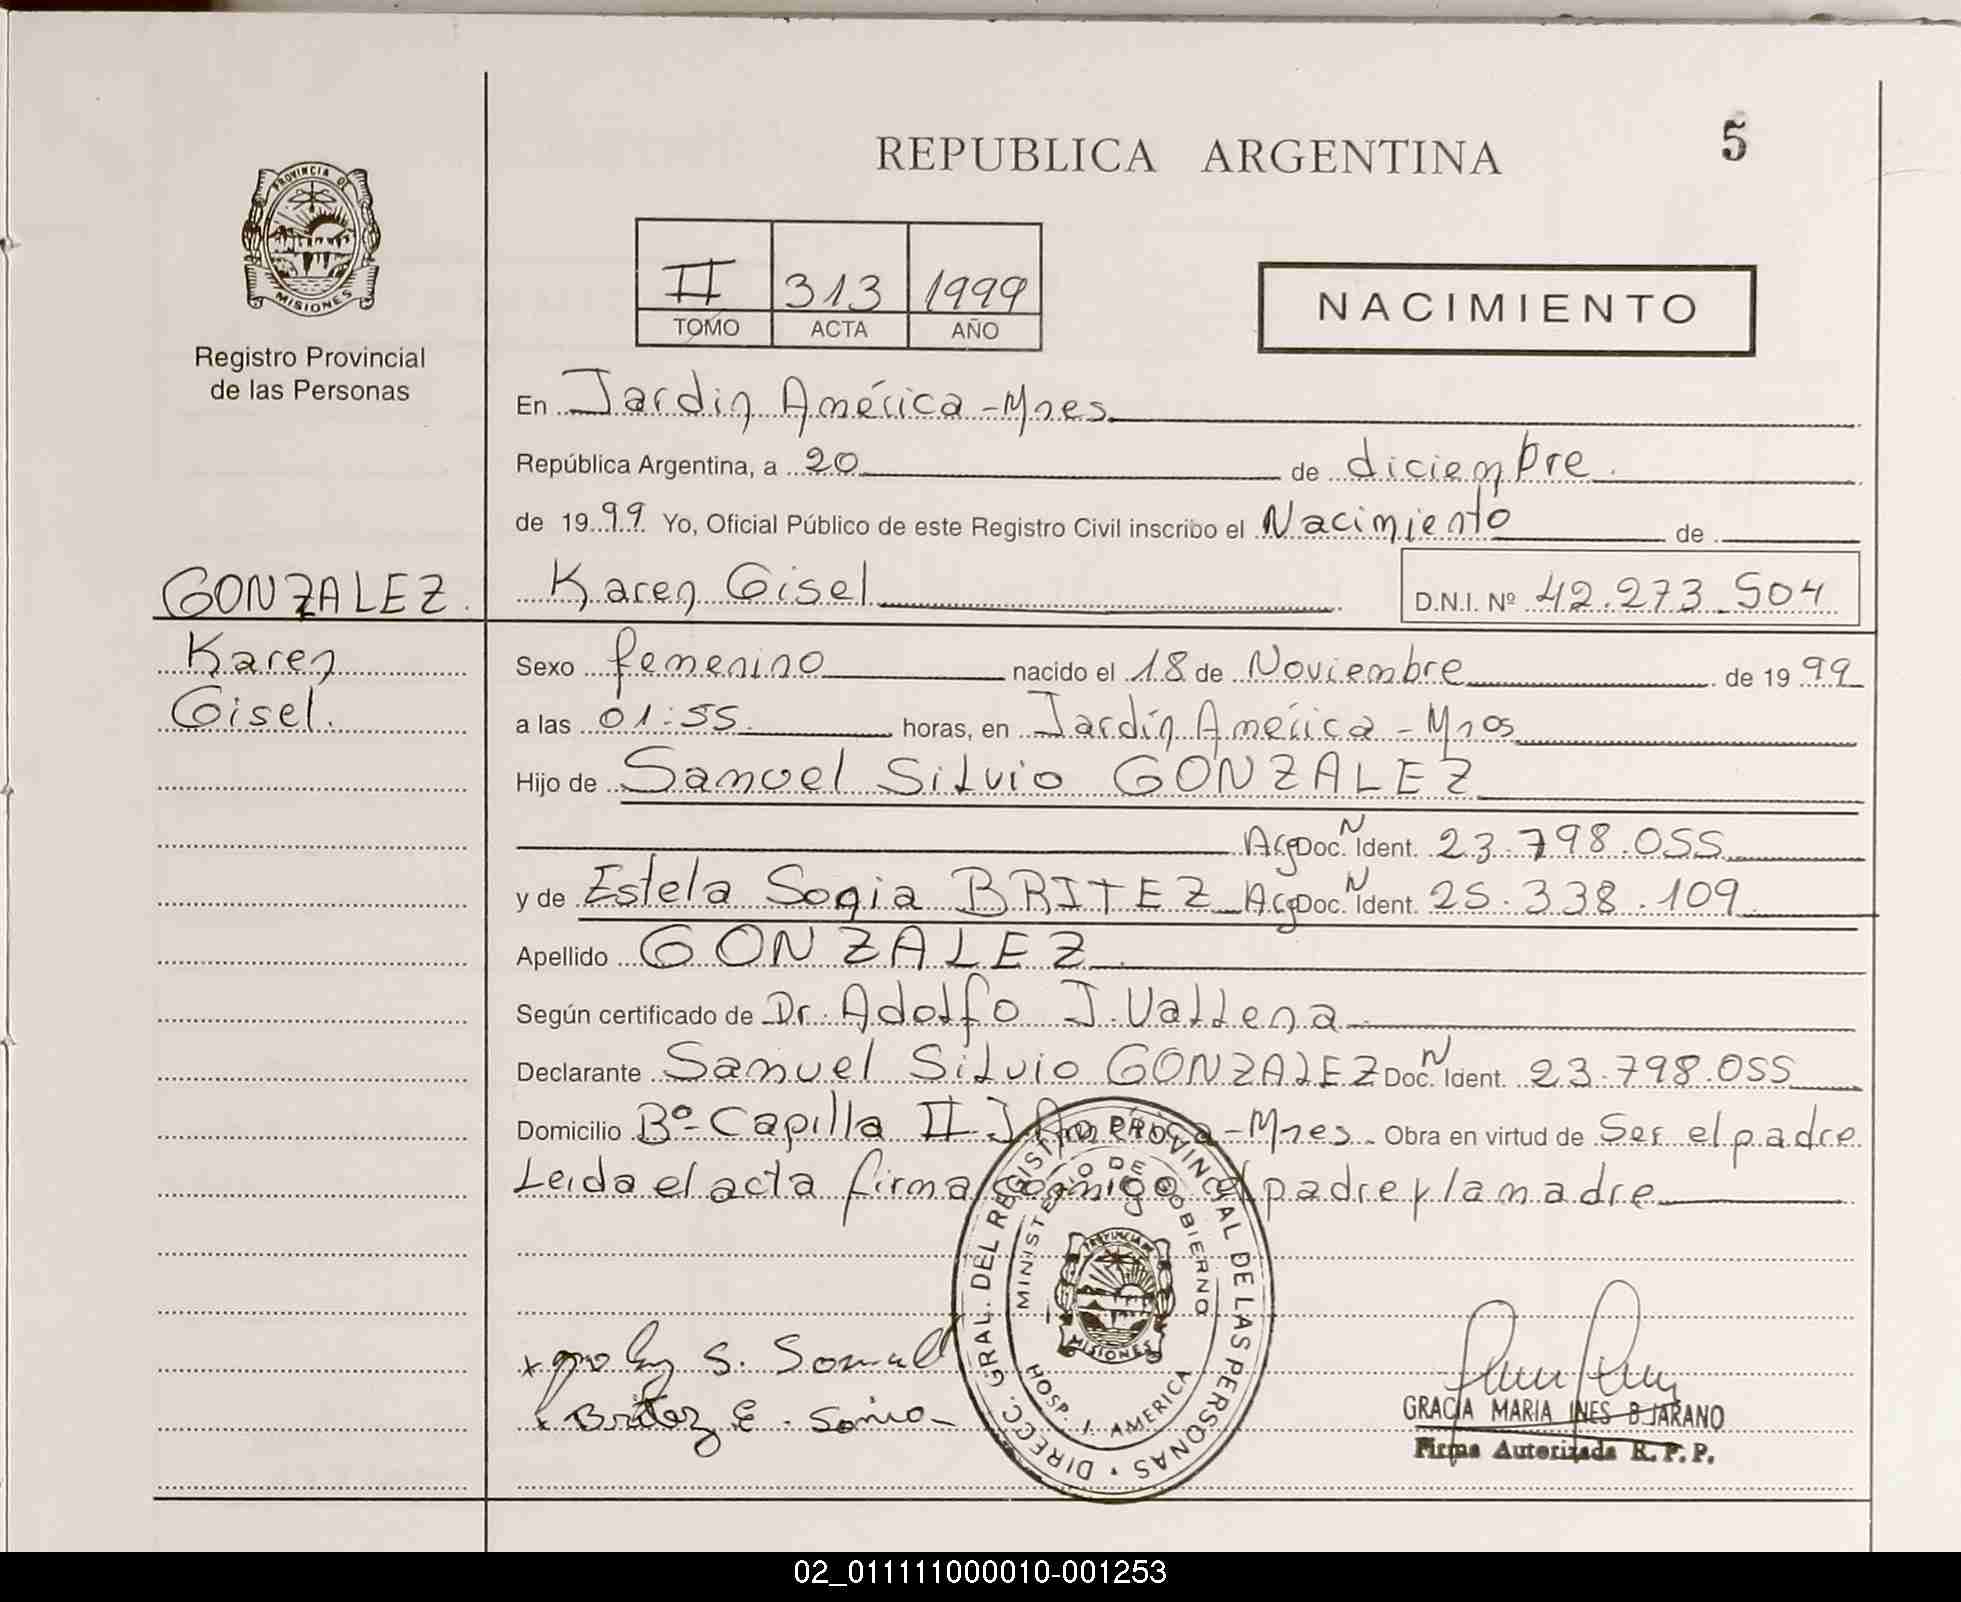 REPUBLICA ARGENTINA
5
PROVINCIA DE
MISIONES
Registro Provincial
de las Personas
II 313 1999
TOMO ACTA AÑO
NACIMIENTO
En Jardin América - Mnes
República Argentina, a 20 de diciembre.
de 1999 Yo, Oficial Público de este Registro Civil inscribo el Nacimiento de
GONZALEZ. Karen Gisel D.N.I. Nº 42.273.504
Karen
Gisel.
Sexo femenino nacido el 18 de Noviembre de 1999
a las 01:55 horas, en Jardín América - Mnes
Hijo de Samuel Silvio GONZALEZ
Arg Doc. N Ident. 23.798.055
y de Estela Sonia BRITEZ Arg Doc. N Ident. 25.338.109
Apellido GONZALEZ
Según certificado de Dr. Adolfo J. Vallena
Declarante Samuel Silvio GONZALEZ Doc. N Ident. 23.798.055
Domicilio Bº- Capilla II J. América - Mnes. Obra en virtud de Ser el padre
Leida el acta firma conmigo el padre y la madre
DIRECC. GRAL. DEL REGISTRO PROVINCIAL DE LAS PERSONAS
MINISTERIO DE GOBIERNO
PROVINCIA DE
MISIONES
HOSP. J. AMERICA
x S. Samuel
x Britez E. Sonia
GRACIA MARIA INES BEJARANO
Firma Autorizada R. P. P.
02_011111000010-001253